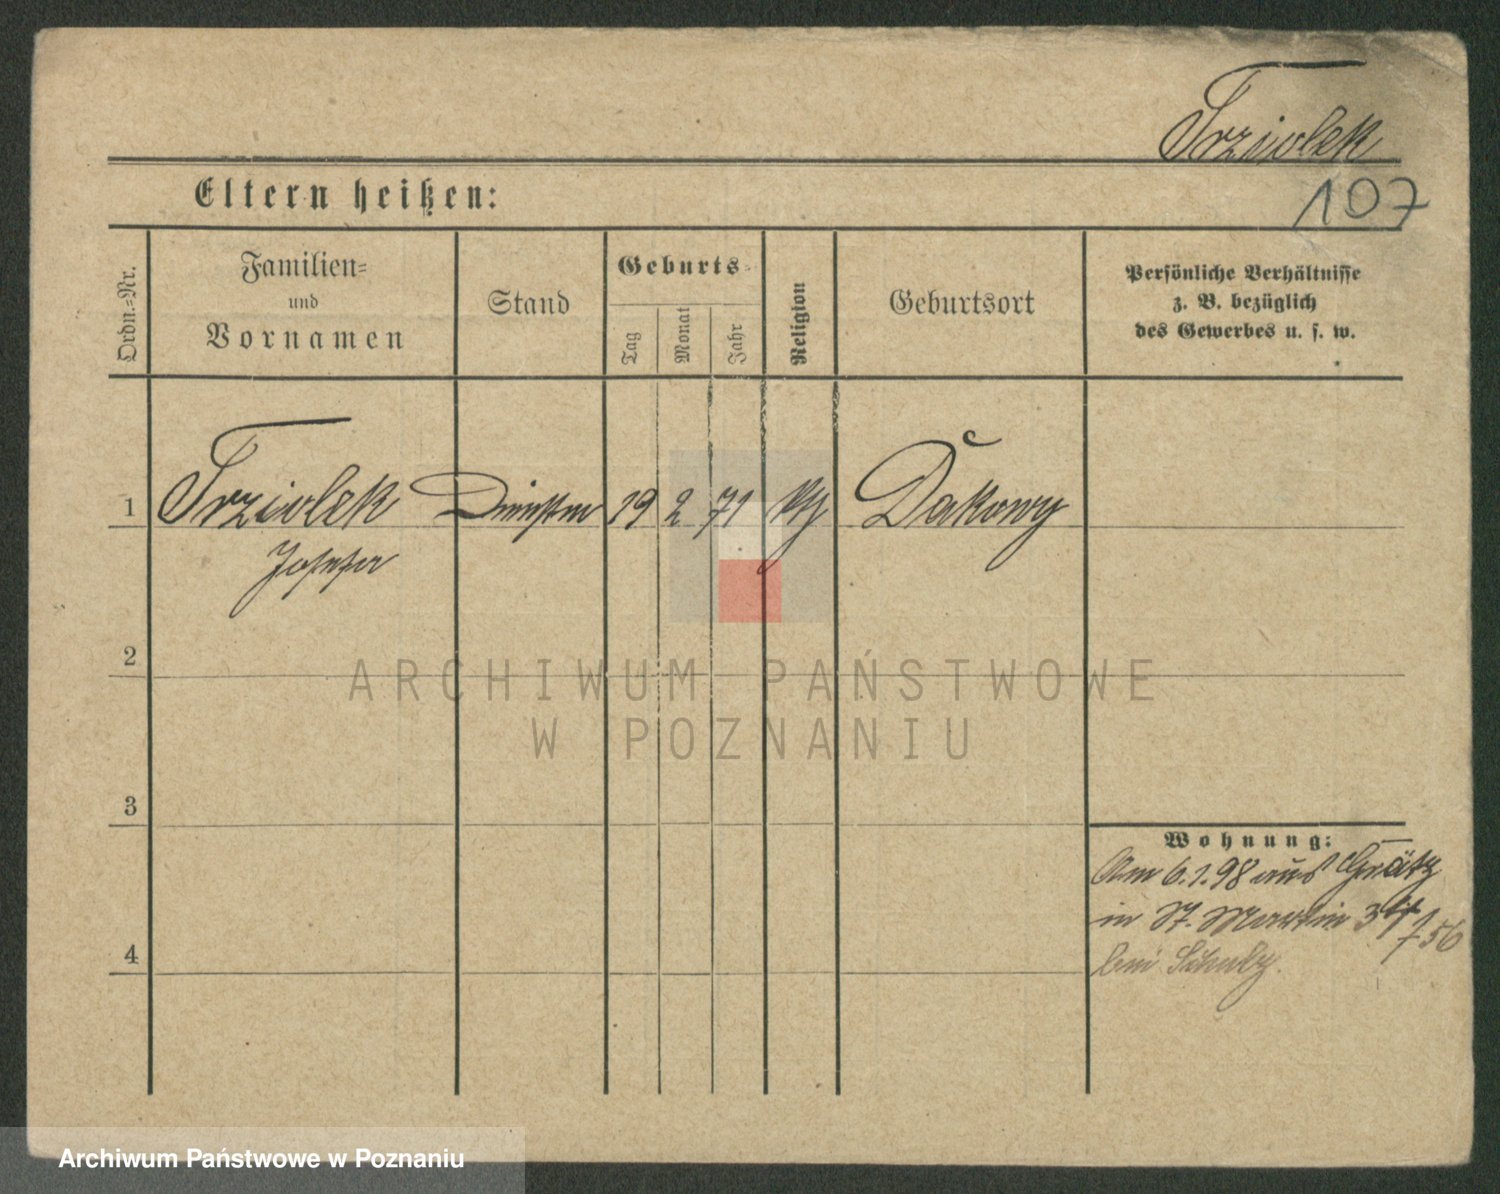 Trziolek
107
Eltern heißen:
Ordn.=Nr.
Familien=
und
Vornamen
Stand
Geburts=
Tag
Monat
Jahr
Religion
Geburtsort
Persönliche Verhältnisse
z. B. bezüglich
des Gewerbes u. s. w.
1 Trziolek 19 2 71 kth Dakowy
Josefa
2
ARCHIWUM PAŃSTWOWE
W POZNANIU
3
Wohnung:
Am 6.1.98 aus Grätz
in St. Martin
756
4
bei Schulz.
Archiwum Państwowe w Poznaniu